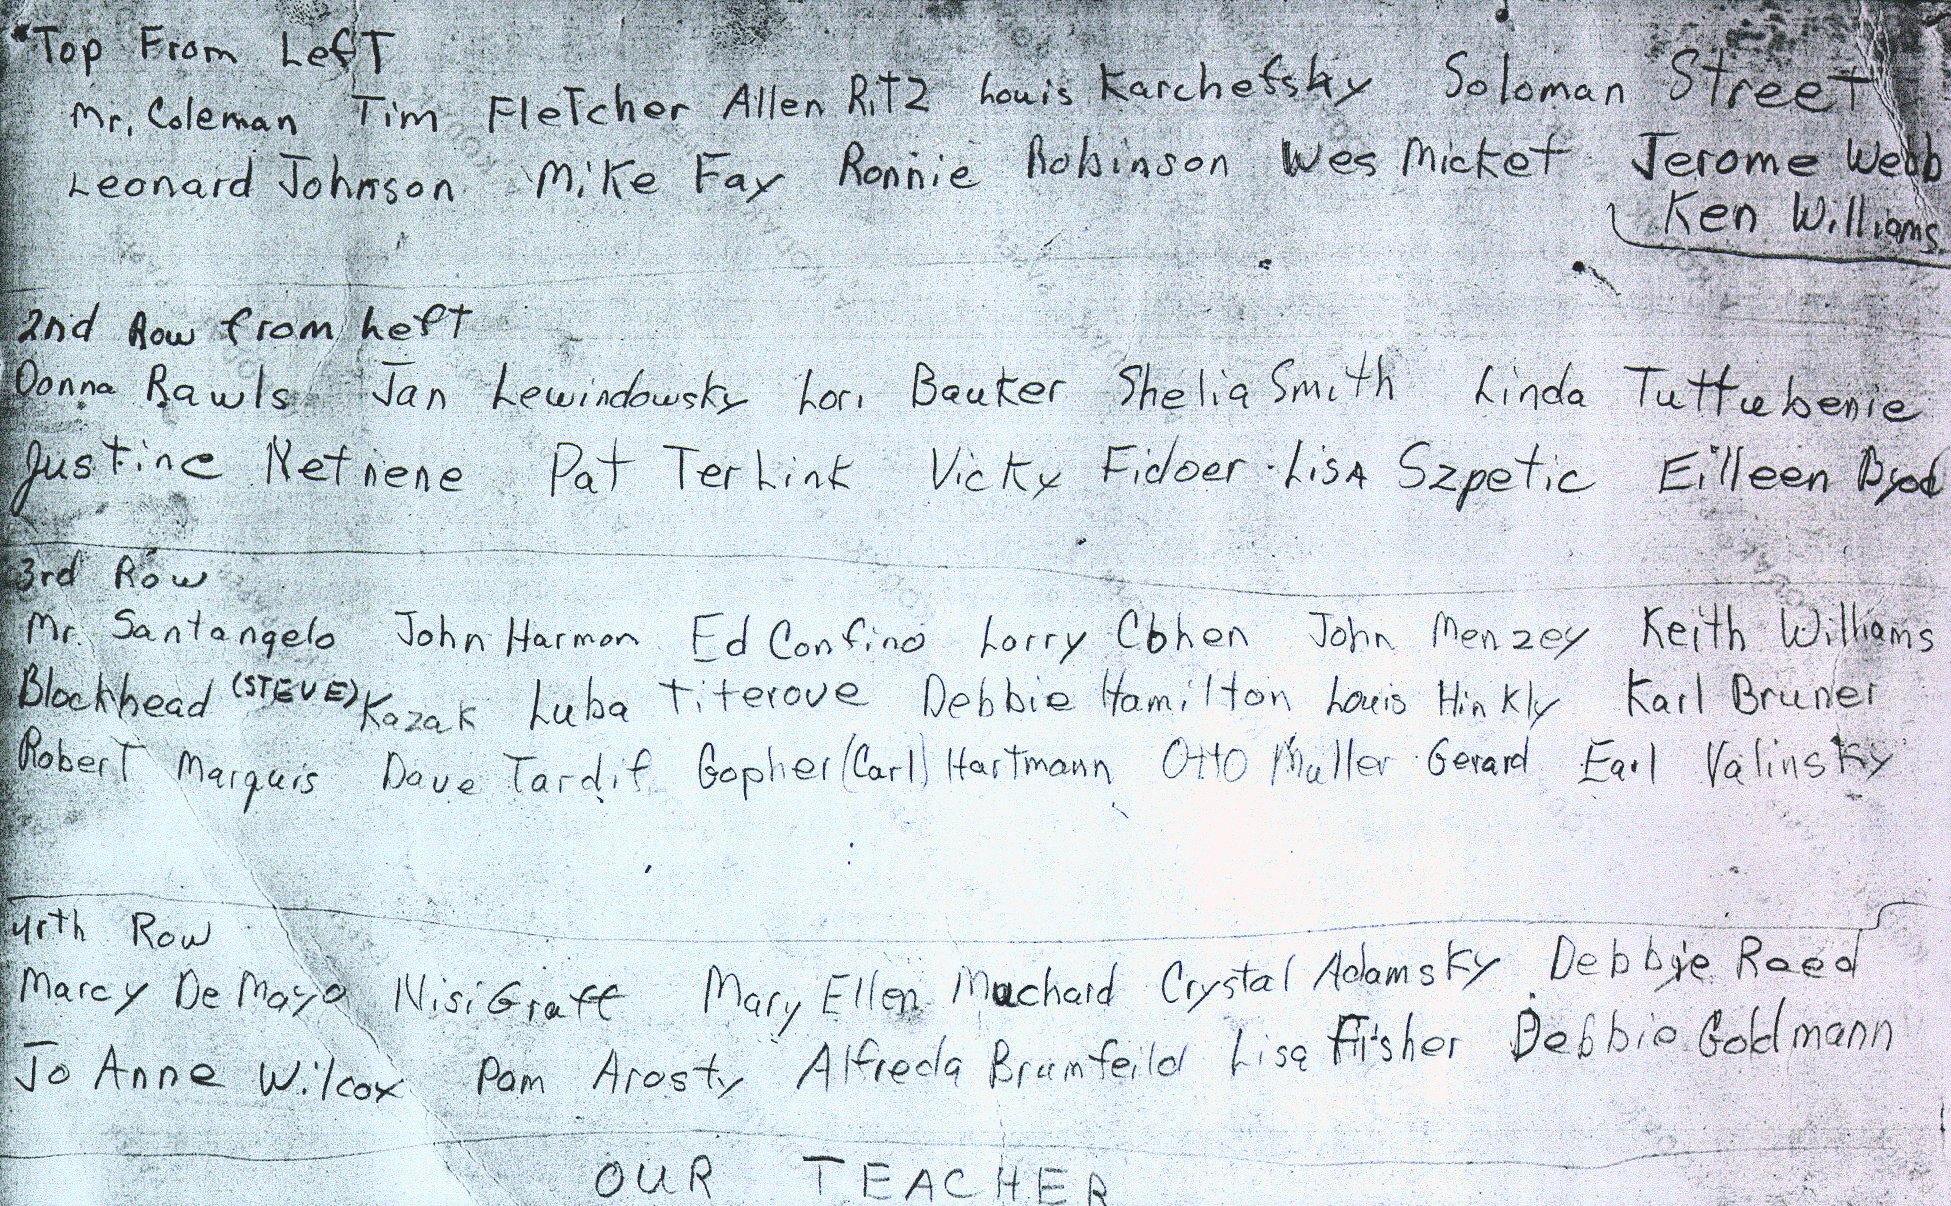 Top From Left
Mr. Coleman Tim Fletcher Allen Ritz Louis Karchefsky Soloman Street
Leonard Johnson Mike Fay Ronnie Robinson Wes Micket Jerome Webb
Ken Williams
2nd Row from Left
Donna Rawls Jan Lewindowsky Lori Bauker Shelia Smith Linda Tuttubenie
Justine Netnene Pat TerLink Vicky Fidoer Lisa Szpetic Eilleen Byod
3rd Row
Mr. Santangelo John Harmon Ed Confino Larry Cohen John Menzey Keith Williams
Blockhead (STEVE) Kazak Luba Titerove Debbie Hamilton Louis Hinkly Karl Bruner
Robert Marquis Dave Tardif Gopher (Carl) Hartmann Otto Muller Gerard Earl Valinsky
4rth Row
Marcy De Mayo Nisi Graff Mary Ellen Muchard Crystal Adamsky Debbie Reed
Jo Anne Wilcox Pam Arosty Alfreda Brumfeild Lisa Fisher Debbie Goldmann
OUR TEACHER